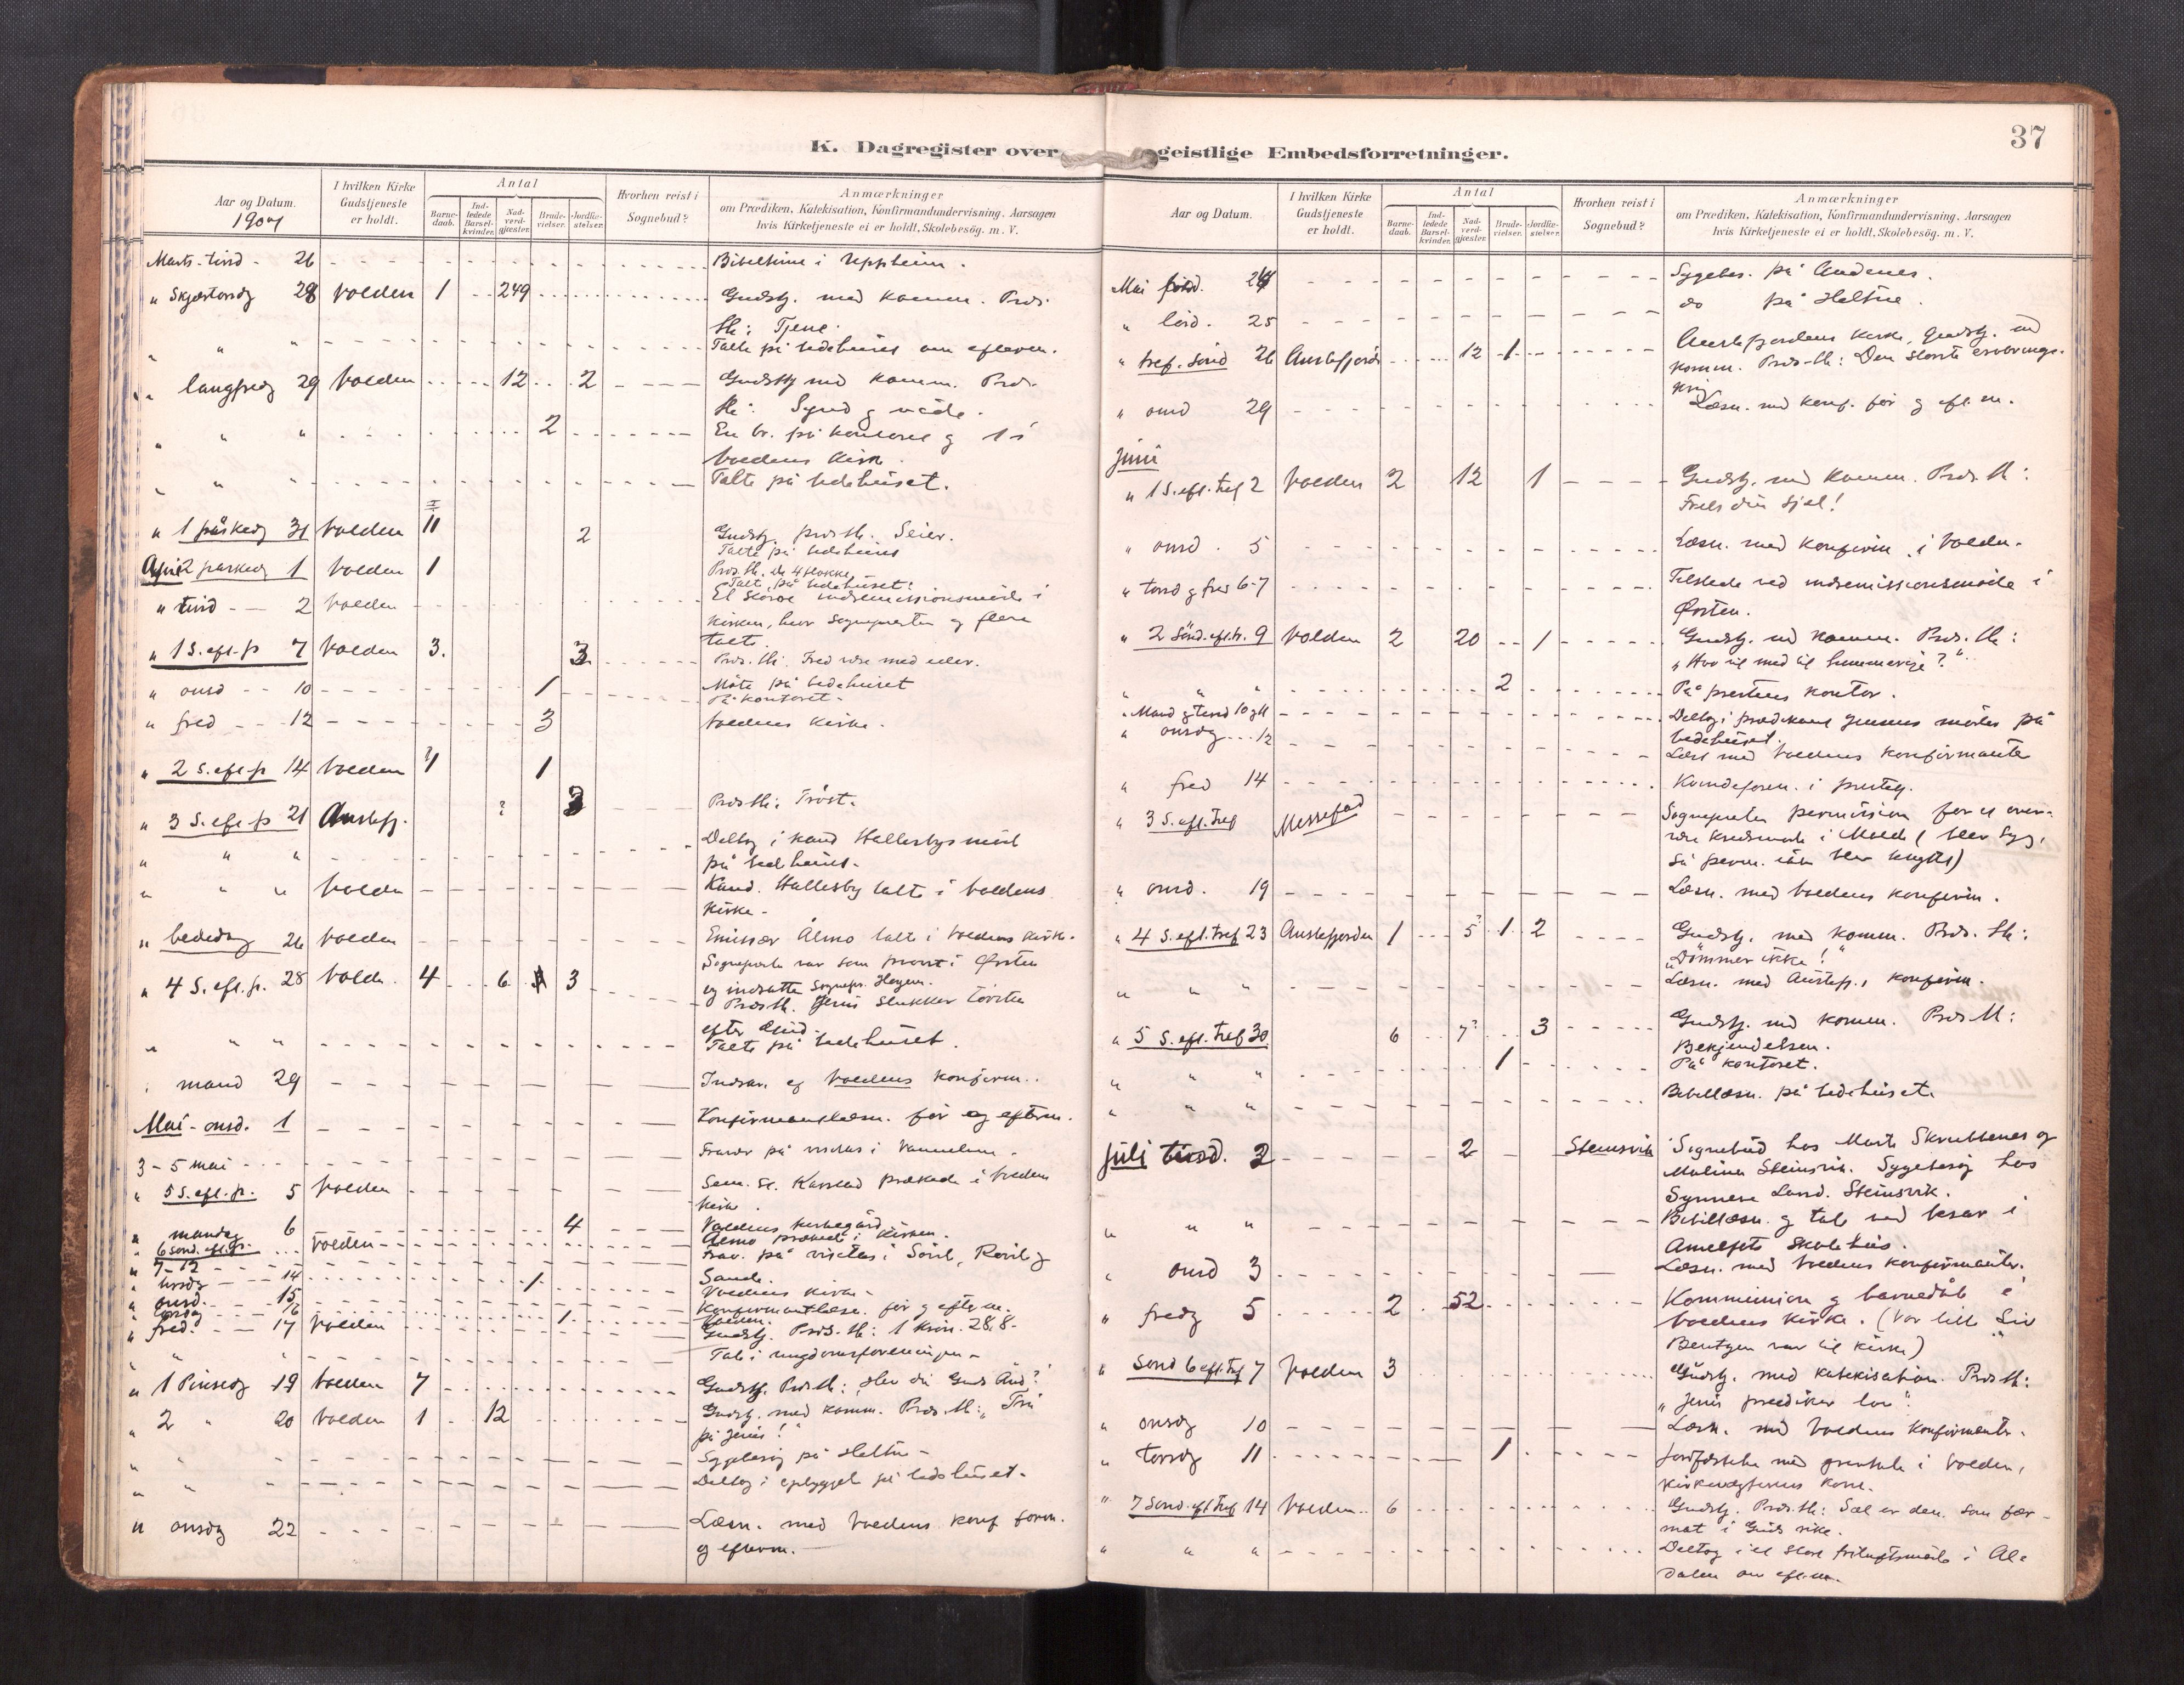 37
K. Dagregister over geistlige Embedsforretninger.
Aar og Datum.
1907
I hvilken Kirke Gudstjeneste er holdt.
Antal
Barnedaab.
Indledede Barselkvinder.
Nadverdgjæster.
Brudevielser.
Jordfæstelser.
Hvorhen reist i Sognebud?
Anmærkninger
om Prædiken, Katekisation, Konfirmandundervisning, Aarsagen
hvis Kirketjeneste ei er holdt, Skolebesøg. m. V.
Marts - tirsd - 26 Bibeltime i Uppheim.
" Skjærtorsdg 28 Volden 1 249 Gudstj. med komm. Præd.
th: Tjene.
" " " Talte på bedehuset om efterm.
" langfredg 29 Volden 12 2 Gudstj med komm. Præd.
th: Synd g nåde.
" " " 2 En br. på kontoret g 1 i
Voldens kirke.
" " " Talte på bedehuset.
" 1 påskedg 31 Volden 11 2 Gudstj. præd. th. Seier.
Talte på bedehuset
April 2 påskedg 1 Volden 1 Præd. th. De 4 flokke
Talt på bedehuset.
" tirsd - - 2 Volden Et større indremissionsmøde i
kirken, hvor Sognepresten og flere
talte.
" 1 S. eft. p 7 Volden 3. 3 Præd. th. Fred være med eder.
Møte på bedehuset
" onsd - - 10 1 På kontoret.
" fred - - 12 3 Voldens kirke.
" 2 S. eft. p 14 Volden ?1 1
" 3 S. eft. p 21 Austefj. ? 3 Præd th: Trøst.
" " " Deltog i kand Hallesbys møte
på bedehuset.
" " " Volden Kand. Hallesby talte i Voldens
kirke.
" bededag 26 Volden Emissær Ålmo talte i Voldens kirke.
" 4 S. eft. p. 28 Volden 4 6 3 Sognepresten var som provst i Ørsten
og indsatte Sognepr. Hagen.
Præd th. Jesus slukker tørsten
efter Gud.
" " " Talte på bedehuset.
" mand 29 Indskr. af Voldens konfirm.
Mai - onsd. 1 Konfirmantlæsn. før og efterm.
3 - 5 mai Fravær på visitas i Vannelven.
" 5 S. eft. p. 5 Volden
kirke.
" mandag 6 4 Voldens kirkegård
" 6 sønd. eft. p. Volden Ålmo prækede i kirken.
" 7-12 Frav. på visitas i Søvde, Rovde g
Sande.
" tirsdg 14 1 Voldens kirke
" onsd. 15 Konfirmantlæsn. før g efterm.
" torsdg 16 1 Volden.
" fred. 17 Volden Gudstj. Præd. th: 1 krøn. 28,8.
Tale i ungdomsforeningen
" 1 Pinsedg 19 Volden 7 Gudstj. Præd th: Har du Guds Ånd?
" 2 " 20 Volden 1 12 Gudstj. med komm. Præd. th: "Tro
på Jesus!"
" " Sygebesøg på Heltne
" " Deltog i opbyggels på bedehuset.
" onsdg 22 Læsn. med Voldens konf form.
og efterm.
Aar og Datum.
I hvilken Kirke Gudstjeneste er holdt.
Antal
Barnedaab.
Indledede Barselkvinder.
Nadverdgjæster.
Brudevielser.
Jordfæstelser.
Hvorhen reist i Sognebud?
Anmærkninger
om Prædiken, Katekisation, Konfirmandundervisning, Aarsagen
hvis Kirketjeneste ei er holdt, Skolebesøg. m. V.
Mai fred. 24 Sygebes. på Andenes.
" lørd. 25 do på Heltne.
" tref. sønd 26 Austefjord 12 1 Austefjordens kirke, Gudstj. m
komm. Præd-th: Den største erobrings-
krig
" onsd 29 Læsn. med konf. før g eft.m.
Juni
" 1 S. eft. tref 2 Volden 2 12 1 Gudstj. med komm. Præd. th:
Frels din sjel!
" onsd. 5 Læsn. med konfirm. i Volden.
" torsd g fred 6-7 Tilstede ved indremissionsmøde i
Ørsten.
" 2 Sønd. eft. tr. 9 Volden 2 20 1 Gudstj. md komm. Præd. th:
"Hvo vil med til himmerige?"
" " " 2 På prestens kontor.
" Mand g tirsd 10 g 11 Deltog i prædikant Jensens møder på
bedehuset.
" onsdg 12 Læst med Voldens konfirmanter
" fred 14 Kvindeforen. i prestg.
" 3 S. eft. tref Messefad Sognepresten permission for at over-
være kredsmøde i Molde (blev syg,
så perm. ikke blev benyttet)
" onsd. 19 Læsn. med Voldens konfirm.
" 4 S. eft. tref 23 Austefjorden 1 5? 1 2 Gudstj. med komm. Præd. th:
"Dømmer ikke!"
" " " Læsn. med Austefj.s konfirm.
" 5 S. eft. tref 30 6 7? 3 Gudstj. med komm. Præd th:
Bekjendelsen.
" " " 1 På kontoret.
" " " Bibellæsn. på bedehuset.
Juli tirsd. 2 2 Steinsvik Sognebud hos Marte Skrubbenes og
Malina Steinsvik. Sygebesøg hos
Synneve Land. Steinsvik.
" " " Bibellæsn. g tale ved besøk i
Skolehus.
" onsd 3 Læsn. med Voldens konfirmanter.
" fredg 5 2 52 Kommunion g barnedåb i
Voldens kirke. (Vor lille Liv
Bentzen var til kirke)
" Sønd 6 eft. tref 7 Volden 3 Gudstj. med katekisation. Præd th:
"Jesus prædiker lov".
" onsdg 10 Læsn. med Voldens konfirmanter.
" torsdg 11 1 Jordfæstelse med gravtale i Volden,
kirkevægterens kone.
" 7 Sønd. eft. tref 14 Volden 6 Gudstj. Præd. th: Sæl er den, som får
mat i Guds rike.
" " " Deltog i et stort friluftsmøde i Al-
dalen om eft.m.